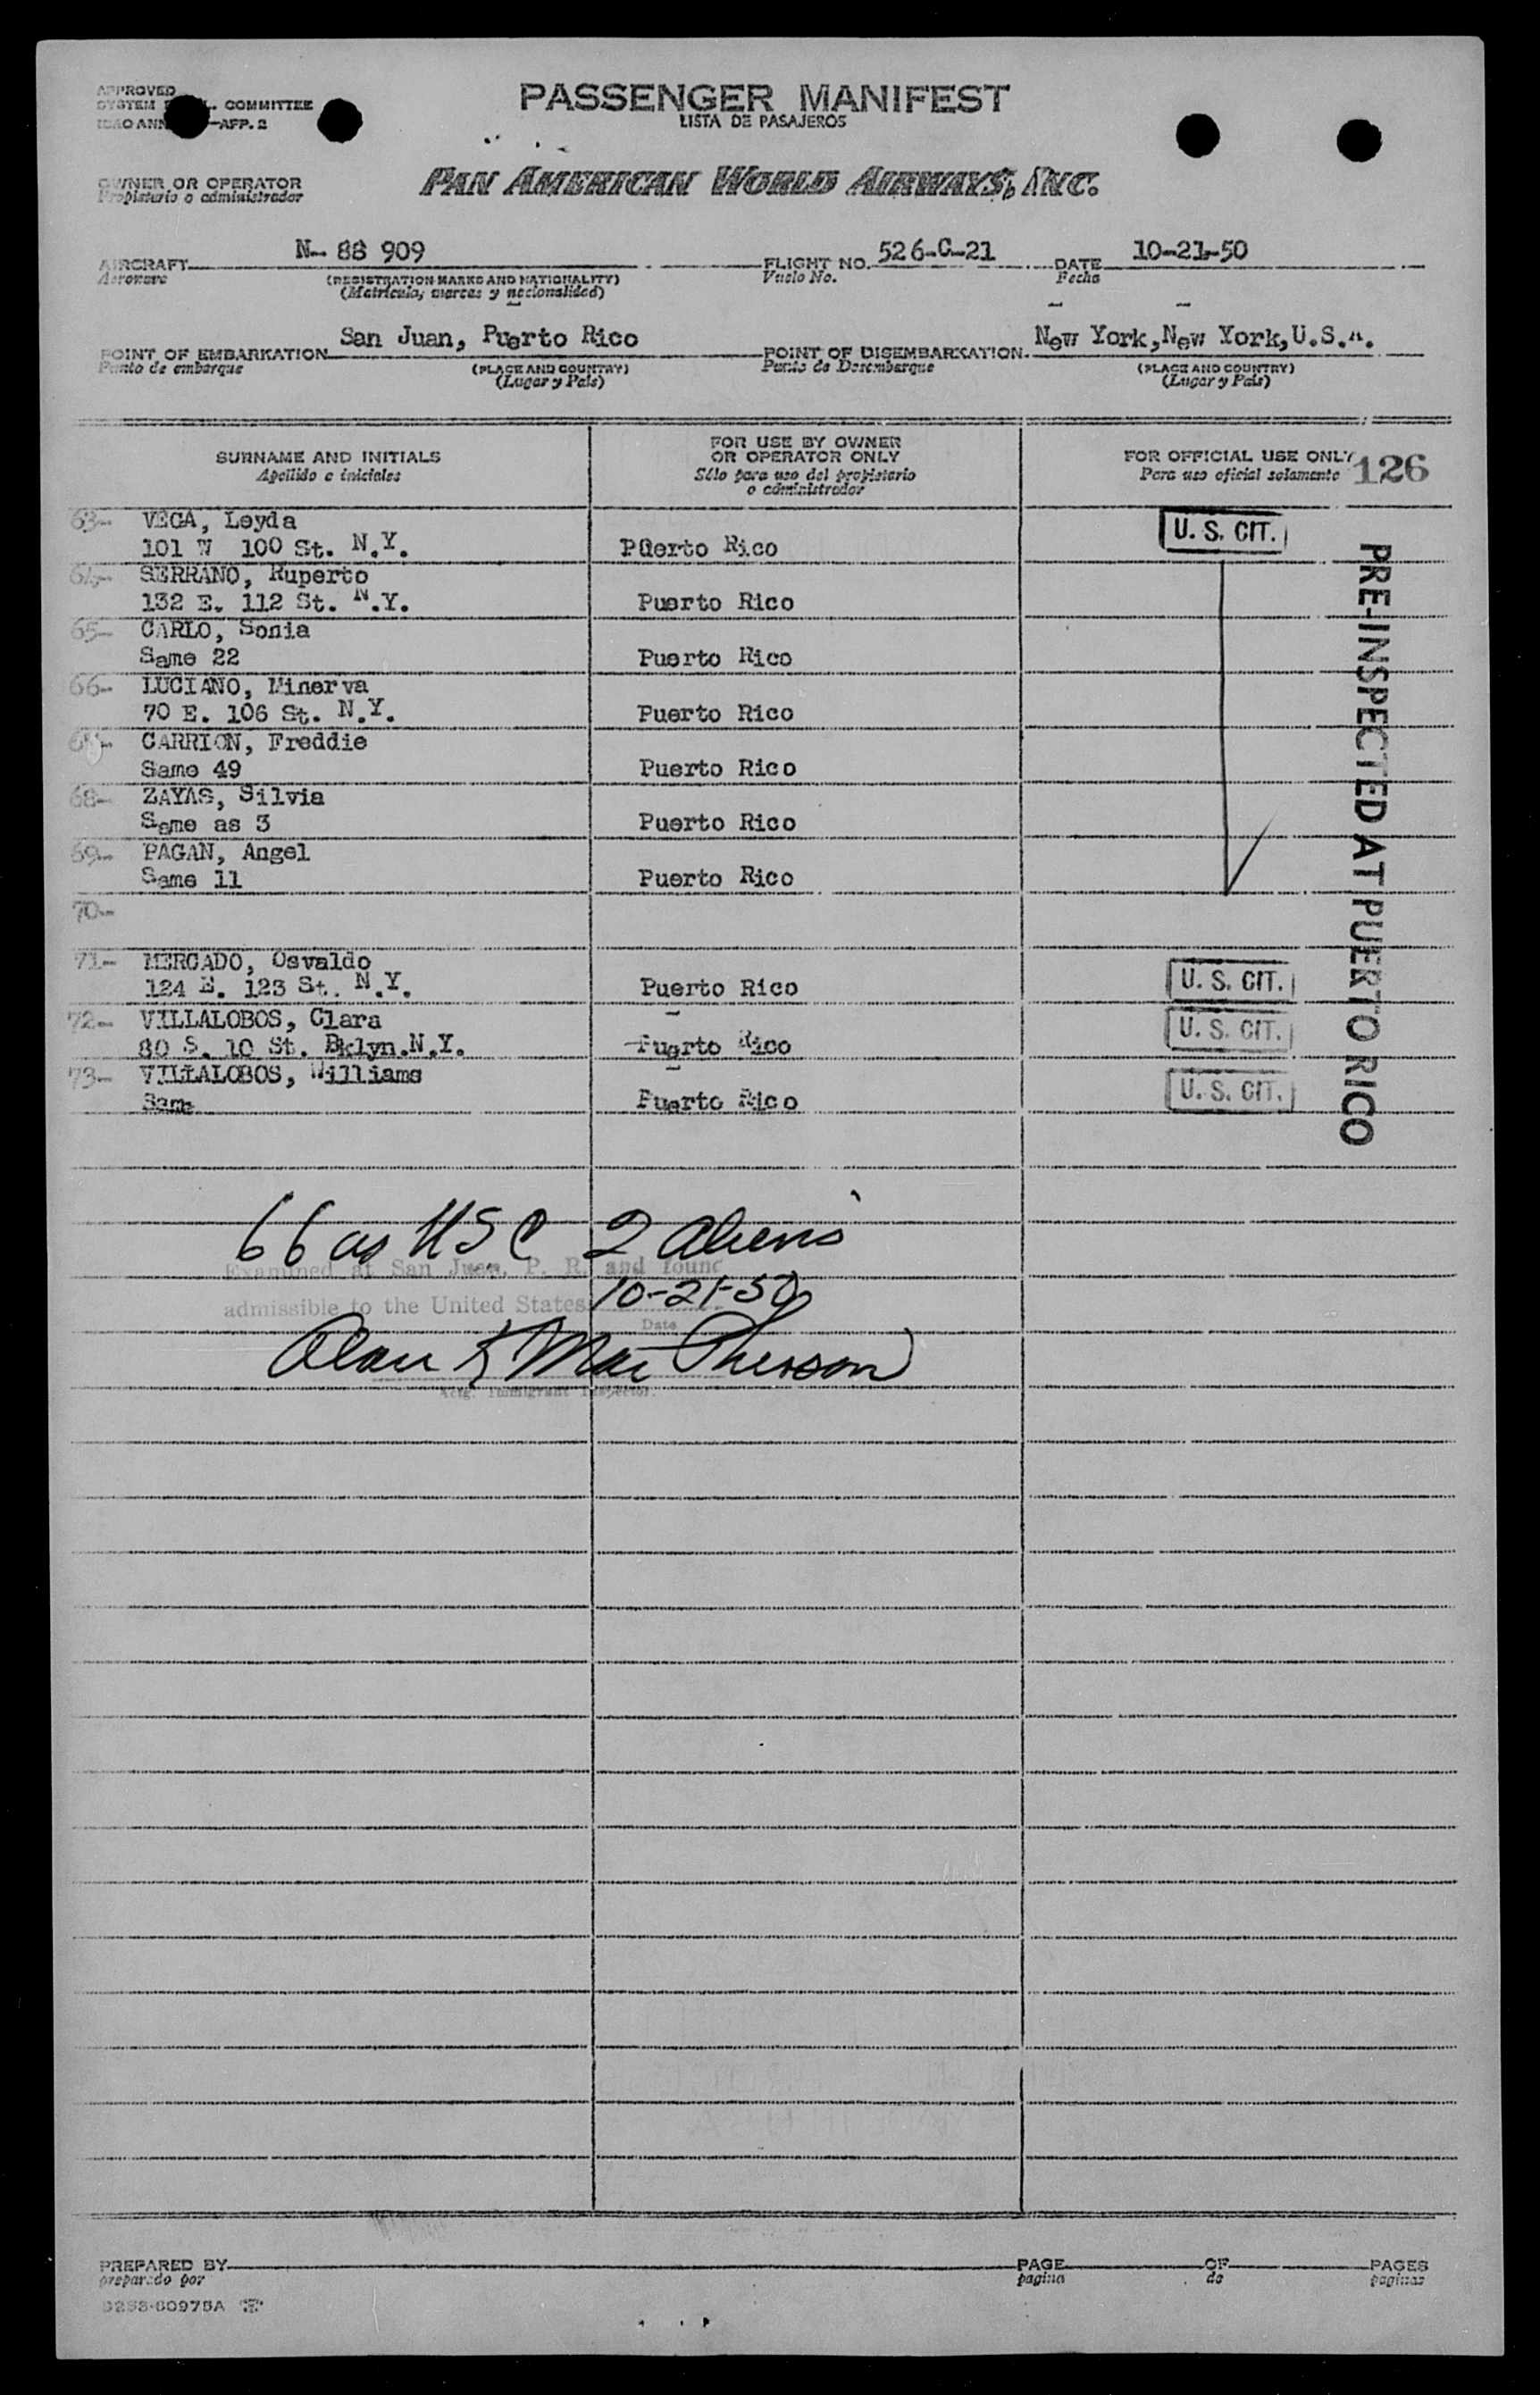 APPROVED
SYSTEM COMMITTEE
APP. 2
PASSENGER MANIFEST
LISTA DE PASAJEROS
OWNER OR OPERATOR
Propietario o administrador
PAN AMERICAN WORLD AIRWAYS, INC.
AIRCRAFT N- 88 909 FLIGHT NO. 526-C-21 DATE 10-21-50
Aeronave (REGISTRATION MARKS AND NATIONALITY) Vuelo No. Fecha
(Matricula, marcas y nacionalidad)
POINT OF EMBARKATION San Juan, Puerto Rico POINT OF DISEMBARKATION New York, New York, U.S.A.
Punto de embarque (PLACE AND COUNTRY) Punto de Desembarque (PLACE AND COUNTRY)
(Lugar y País) (Lugar y País)
SURNAME AND INITIALS
Apellido e iniciales
FOR USE BY OWNER
OR OPERATOR ONLY
Sólo para uso del propietario
o administrador
FOR OFFICIAL USE ONLY
Para uso oficial solamente 126
63- VEGA, Leyda
101 W 100 St. N.Y. Puerto Rico U. S. CIT.
64- SERRANO, Ruperto
132 E. 112 St. N.Y. Puerto Rico
65- CARLO, Sonia
Same 22 Puerto Rico
66- LUCIANO, Minerva
70 E. 106 St. N.Y. Puerto Rico
67- CARRION, Freddie
Same 49 Puerto Rico
68- ZAYAS, Silvia
Same as 3 Puerto Rico
69- PAGAN, Angel
Same 11 Puerto Rico
70-
71- MERCADO, Osvaldo
124 E. 123 St. N.Y. Puerto Rico U. S. CIT.
72- VILLALOBOS, Clara
80 S. 10 St. Bklyn.N.Y. Puerto Rico U. S. CIT.
73- VILLALOBOS, Williams
Same Puerto Rico U. S. CIT.
PRE-INSPECTED AT PUERTO RICO
66 as USC 2 aliens
Examined at San Juan, P. R. and found
admissible to the United States 10-21-50
Date
Alan K MacPherson
Actg. Immigrant Inspector.
PREPARED BY PAGE OF PAGES
preparado por pagina de paginas